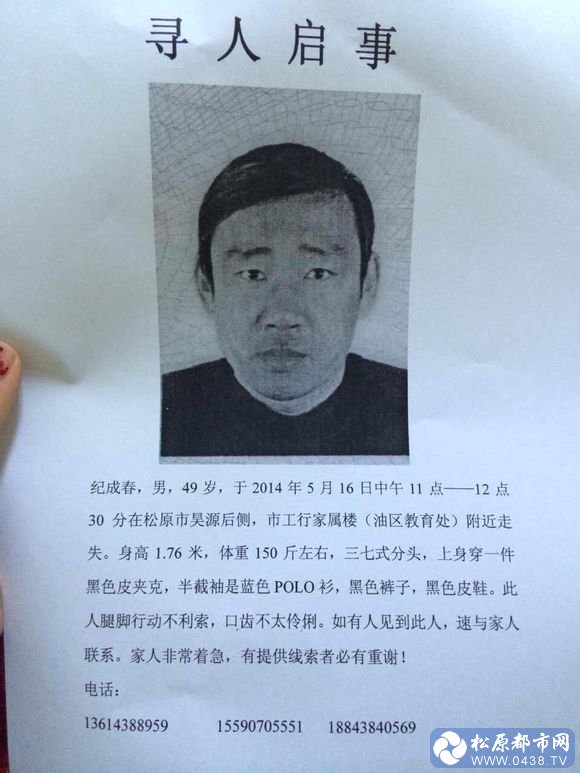 寻人启事
纪成春，男，49岁，于2014年5月16日中午11点——12点
30分在松原市昊源后侧，市工行家属楼（油区教育处）附近走
失。身高1.76米，体重150斤左右，三七式分头，上身穿一件
黑色皮夹克，半截袖是蓝色POLO衫，黑色裤子，黑色皮鞋。此
人腿脚行动不利索，口齿不太伶俐。如有人见到此人，速与家人
联系。家人非常着急，有提供线索者必有重谢！
电话：
13614388959 15590705551 18843840569
松原都市网
www.0438.TV